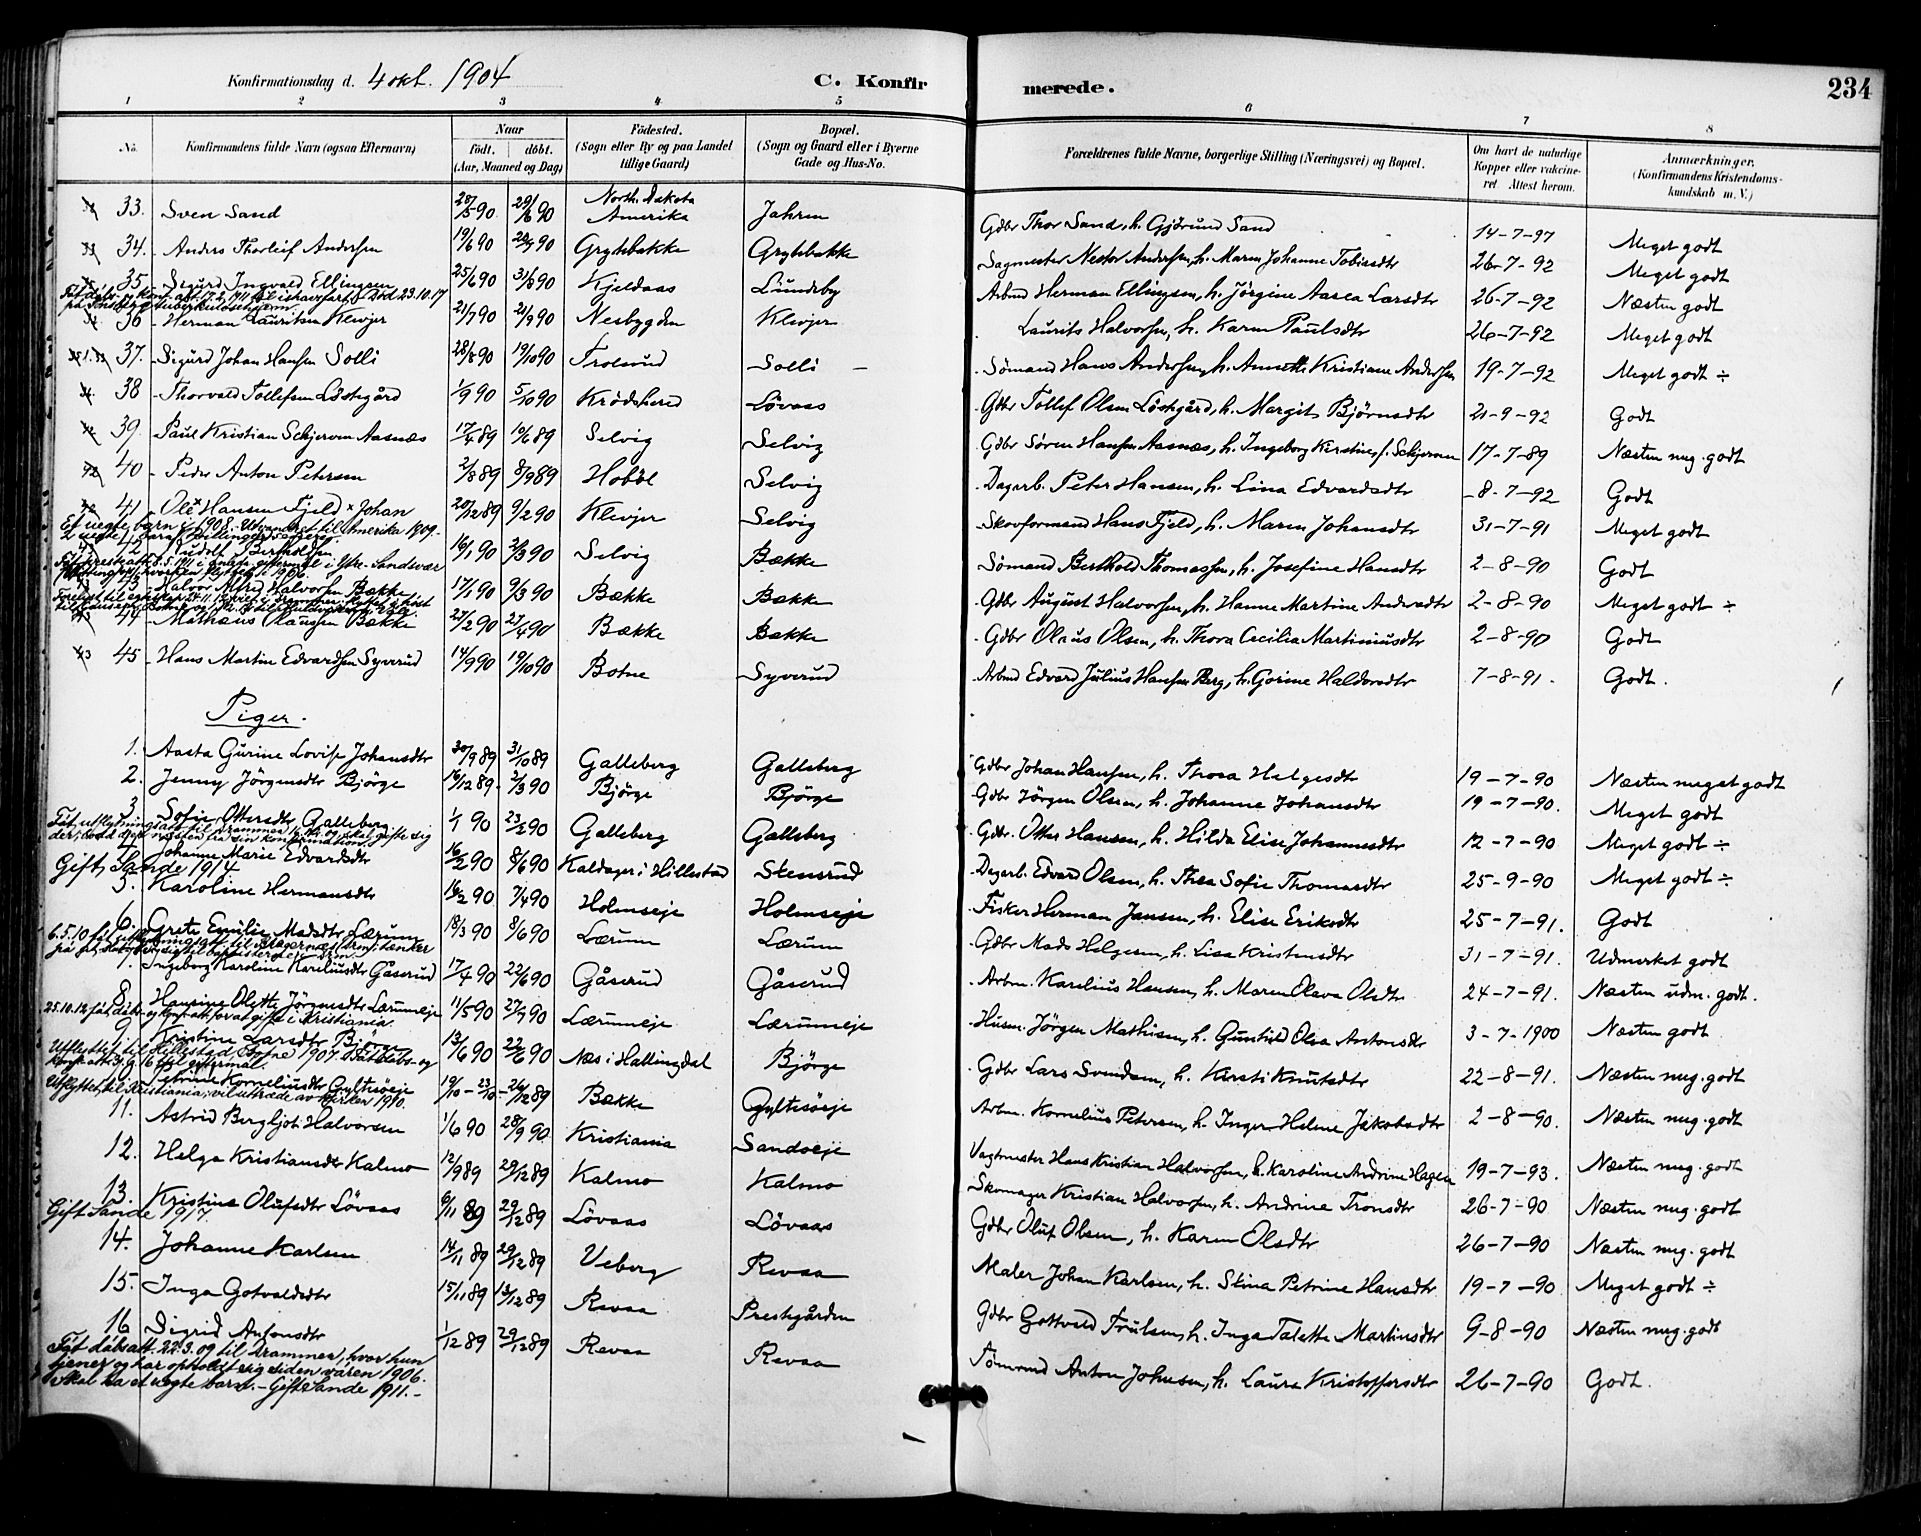 Konfirmationsdag d. 4 okt. 1904 C. Konfirmerede. 234
1 2 3 4 5 6 7 8
No. Konfirmandens fulde Navn (ogsaa Efternavn) Naar födt. döbt. (Aar, Maaned og Dag) Födested. (Sogn eller By og paa Landet tillige Gaard) Bopæl. (Sogn og Gaard eller i Byerne Gade og Hus-No. Forældrenes fulde Navne, borgerlige Stilling (Næringsvei) og Bopæl. Om havt de naturlige Kopper eller vakcineret. Attest herom. Anmærkninger. (Konfirmandens Kristendomskundskab m. V.)
33. Sven Sand 28/5 90 29/6 90 North Dakota Amerika Jahren Gdbr Thor Sand, h. Gjörund Sand 14-7-97 Meget godt
34. Anders Thorleif Andersen 19/6 90 28/9 90 Grytebakke Grytebakke Sagmester Nestor Andersen, h. Maren Johanne Tobiasdtr 26-7-92 Meget godt
35 Sigurd Ingvald Ellingsen 25/6 90 31/8 90 Kjeldaas Lundeby Arbmd Herman Ellingsen, h. Jörgine Aasea Larsdtr 26-7-92 Næsten godt
36 Herman Lauritsen Klevjer 21/7 90 21/9 90 Nesbygden Klevjer Laurits Halvorsen, h. Karen Paulsdtr 26-7-92 Meget godt
37. Sigurd Johan Hansen Solli 28/8 90 19/10 90 Trolsrud Solli Sömand Hans Andersen, h. Annette Kristiane Andersen 19-7-92 Meget godt ÷
38 Thorvald Tollefsen Löstegård 1/9 90 5/10 90 Krödshered Lövaas Gdbr Tollef Olsen Löstegård, h. Margit Björnsdtr 21-9-92 Godt
39. Paul Kristian Schjerven Aasnæs 17/4 89 10/6 89 Selvig Selvig Gdbr Sören Hansen Aasnæs, h. Ingeborg Kirstine f. Schjerven 17-7-89 Næsten meg. godt
40 Peder Anton Petersen 2/8 89 8/9 89 Hoböl Selvig Dagarb. Peter Hansen, h. Lina Edvardsdtr 8-7-92 Godt
41 Ole × Hansen Fjeld × Johan 20/12 89 9/2 90 Klevjer Selvig Skovformand Hans Fjeld, h. Maren Johansdtr 31-7-91 Meget godt
Et uegte barn i 1908. Utvandret til Amerika 1909.
42 Rudolf Bertholdsen 16/1 90 2/3 90 Selvig Bække Sömand Berthold Thomassen, h. Josefine Hansdtr 2-8-90 Godt
43 Halvor Alfred Halvorsen Bække 17/1 90 9/3 90 Bække Bække Gdbr August Halvorsen, h. Hanne Martine Andersdtr 2-8-90 Meget godt ÷
44 Mathæus Olaussen Bække 22/2 90 27/4 90 Bække Bække Gdbr Olaus Olsen, h. Thora Cecilia Martiniusdtr 2-8-90 Godt
45 Hans Martin Edvardsen Syverud 14/9 90 19/10 90 Botne Syverud Arbmd Edvard Julius Hansen Berg, h. Gorine Haldordtr 7-8-91. Godt.
Piger.
1. Aasta Gurine Lovise Johansdtr 30/9 89 31/10 89 Galleberg Galleberg Gdbr Johan Hansen, h. Thora Helgesdtr 19-7-90 Næsten meget godt
2. Jenny Jörgensdtr Björge 16/12 89 2/3 90 Björge Björge Gdbr Jörgen Olsen, h. Johanne Johansdtr 19-7-90. Meget godt
3 Sofie Ottersdtr Galleberg 1/1 90 23/2 90 Galleberg Galleberg Gdbr. Otter Hansen, h. Hilda Elise Johannesdtr 12-7-90 Meget godt ÷
4 Johanne Marie Edvardsdtr 16/2 90 8/6 90 Kaldager i Hillestad Stensrud Dagarb. Edvard Olsen, h. Thea Sofie Thomasdtr 25-9-90 Meget godt ÷
Gift, Sande 1914
5. Karoline Hermansdtr 16/2 90 7/4 90 Holmseje Holmseje Fisker Herman Jansen, h. Elise Eriksdtr 25-7-91. Godt
6. Grete Emilie Madsdtr Lærum 18/3 90 8/6 90 Lærum Lærum Gdbr Mads Helgesen, h. Lisa Kristensdtr 31-7-91. Udmerket godt
7. Ingeborg Karoline Kareliusdtr Gåserud 17/4 90 22/6 90 Gåserud Gåserud Arbm. Karelius Hansen, h. Maren Olava Olsdtr 24-7-91. Næsten udm. godt.
8 Hansine Olette Jörgensdtr Lærumeje 11/5 90 27/7 90 Lærumeje Lærumeje Husm. Jörgen Mathisen, h. Gunhild Olea Antonsdtr 3-7-1900 Næsten godt
25.10.12 fåt döbs- og konf.att. for at gifte i Kristiania.
9 Kristine Larsdtr Björge 13/6 90 22/6 90 Næs i Hallingdal Björge Gdbr Lars Svendsen, h. Kirsti Knutsdtr 22-8-91. Næsten meg. godt
Korneliusdtr Gyltesöeje 19/10 - 23/10 - 26/12 89 Bække Gyltesöeje Arbm. Kornelius Petersen, h. Inger Helene Jakobsdtr 2-8-90. Næsten meg. godt
Utflyttet til Kristiania, vil utträde av kirken 1910.
11. Astrid Bergljot Halvorsen 1/6 90 28/9 90 Kristiania Sandseje Vagtmester Hans Kristian Halvorsen, h. Karoline Andrine Hagen 19-7-93. Næsten meg. godt
12. Helga Kristiansdtr Kalmo 12/9 89 29/12 89 Kalmo Kalmo Skomager Kristian Halvorsen, h. Andrine Tronsdtr 26-7-90 Næsten meg. godt
13. Kristine Olufsdtr Lövaas 6/11 89 29/12 89 Lövaas Lövaas Gdbr Oluf Olsen, h. Karen Olsdtr 26-7-90 Næsten meg. godt
Gift Sande 1917.
14. Johanne Karlsen 14/11 89 29/12 89 Veberg Revaa Maler Johan Karlsen, h. Stina Petrine Hansdtr 19-7-90 Meget godt ÷
15. Inga Gotvaldsdtr 15/11 89 13/12 89 Revaa Prestgården Gdbr Gottvald Trulsen, h. Inga Talette Martinsdtr 9-8-90 Næsten meg. godt
16 Sigrid Antonsdtr 1/12 89 29/12 89 Revaa Revaa Tömrmd Anton Johnsen, h. Laura Kristoffersdtr 26-7-90 Godt.
Fåt döbsatt. 22.3.09 til Drammen, hvor hun
tjener og har opholdt sig siden våren 1906.
Skal ha et uegte barn. - Gift Sande 1911.-